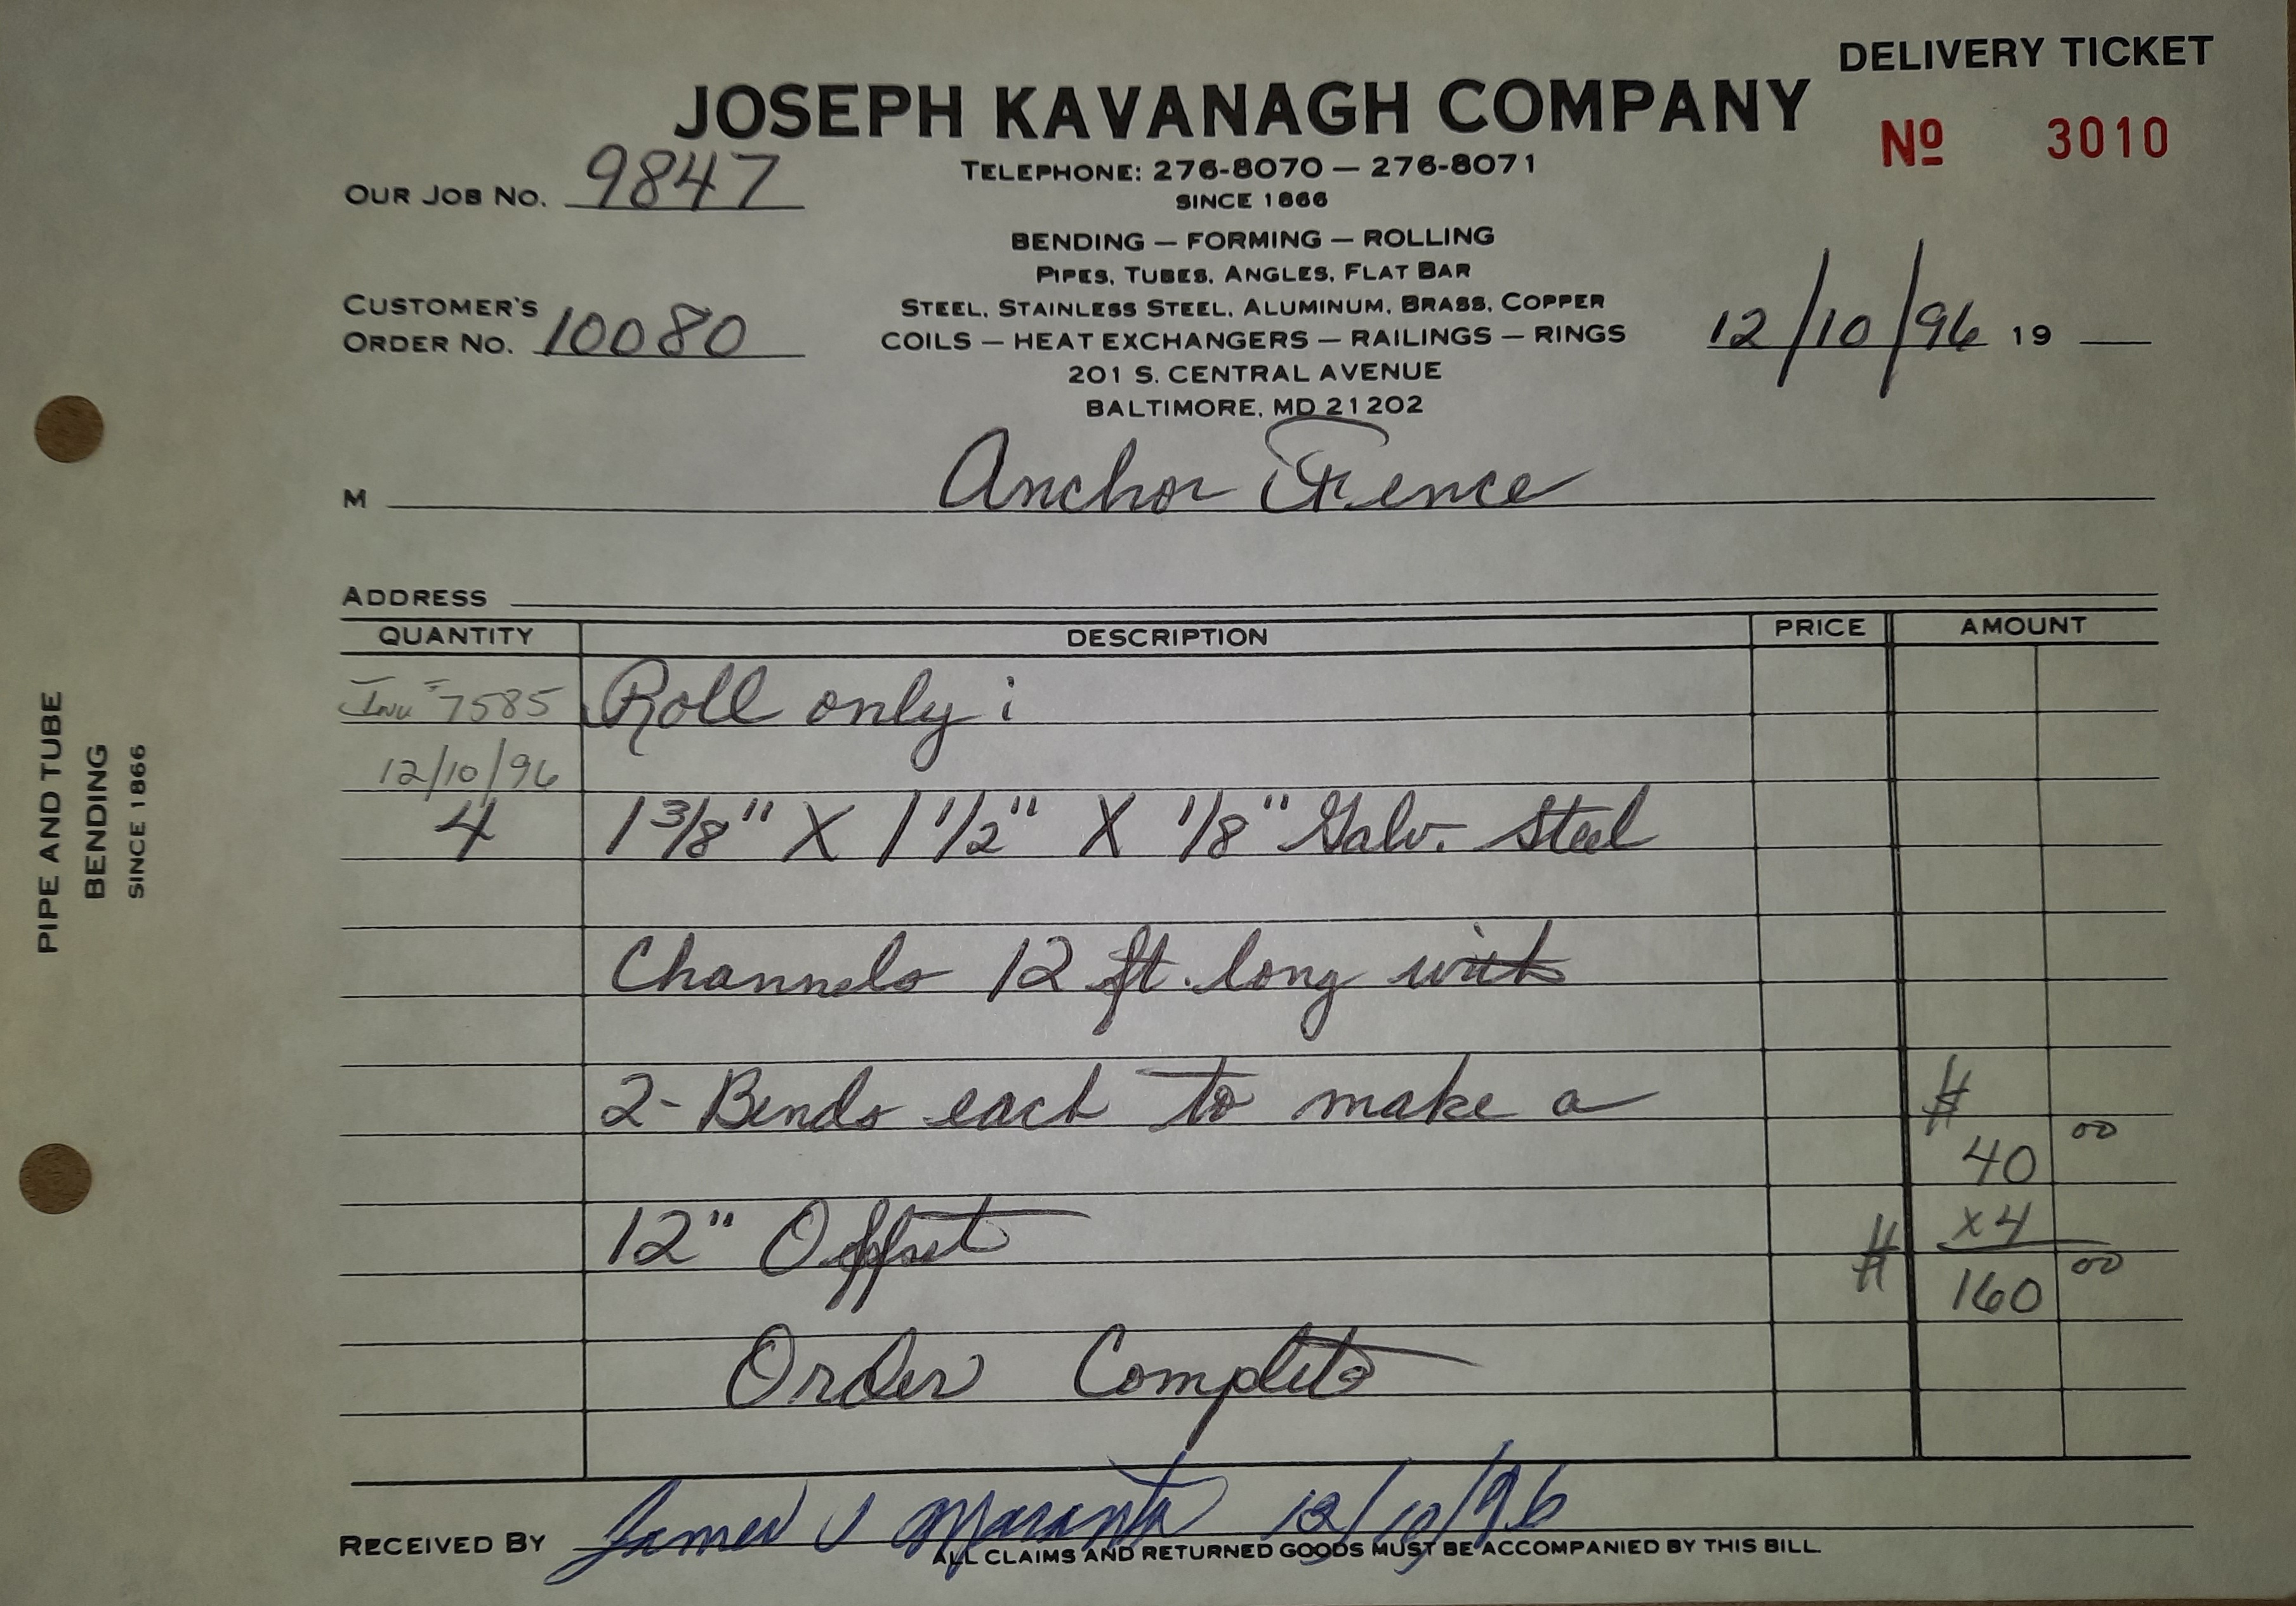 DELIVERY TICKET
JOSEPH KAVANAGH COMPANY
Nº 3010
TELEPHONE: 276-8070 — 276-8071
SINCE 1866
OUR JOB NO. 9847
BENDING — FORMING — ROLLING
PIPES, TUBES, ANGLES, FLAT BAR
STEEL, STAINLESS STEEL, ALUMINUM, BRASS, COPPER
COILS — HEAT EXCHANGERS — RAILINGS — RINGS
201 S. CENTRAL AVENUE
BALTIMORE, MD 21202
CUSTOMER'S
ORDER NO. 10080
12/10/96 19
M Anchor Fence
ADDRESS
QUANTITY DESCRIPTION PRICE AMOUNT
Inv # 7585 Roll only :
12/10/96
4 1 3/8" X 1 1/2" X 1/8" Galv. Steel
Channels 12 ft. long with
2- Bends each to make a $
40 00
12" Offset x4
$ 160 00
Order Complete
RECEIVED BY James J 12/10/96
ALL CLAIMS AND RETURNED GOODS MUST BE ACCOMPANIED BY THIS BILL.
PIPE AND TUBE
BENDING
SINCE 1866